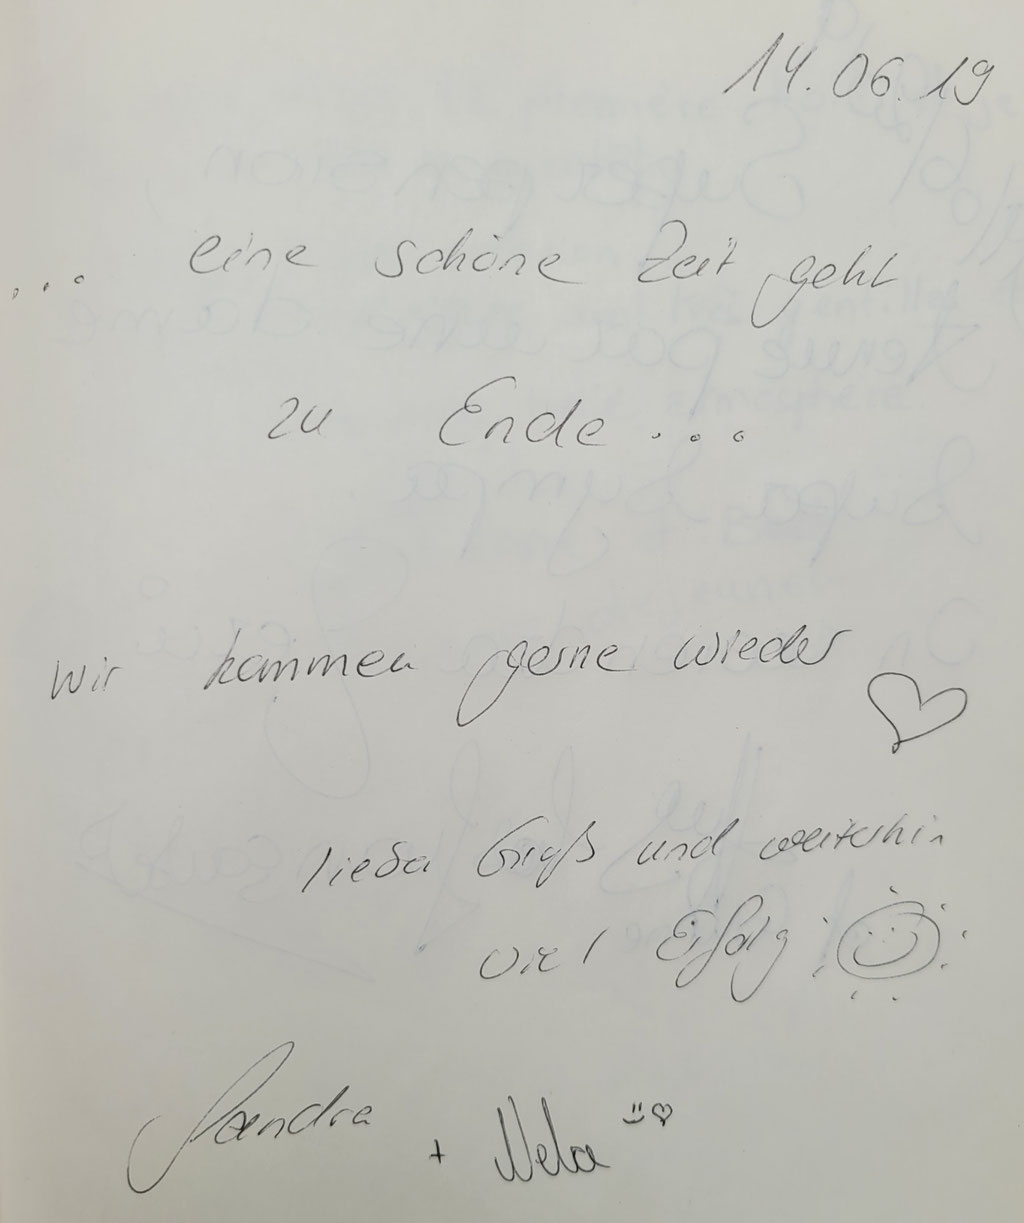 14.06.19
... eine schöne Zeit geht
zu Ende...
Wir kommen gerne wieder
lieda Gruß und weiterhin
viel Erfolg
Sandra
+ Nela